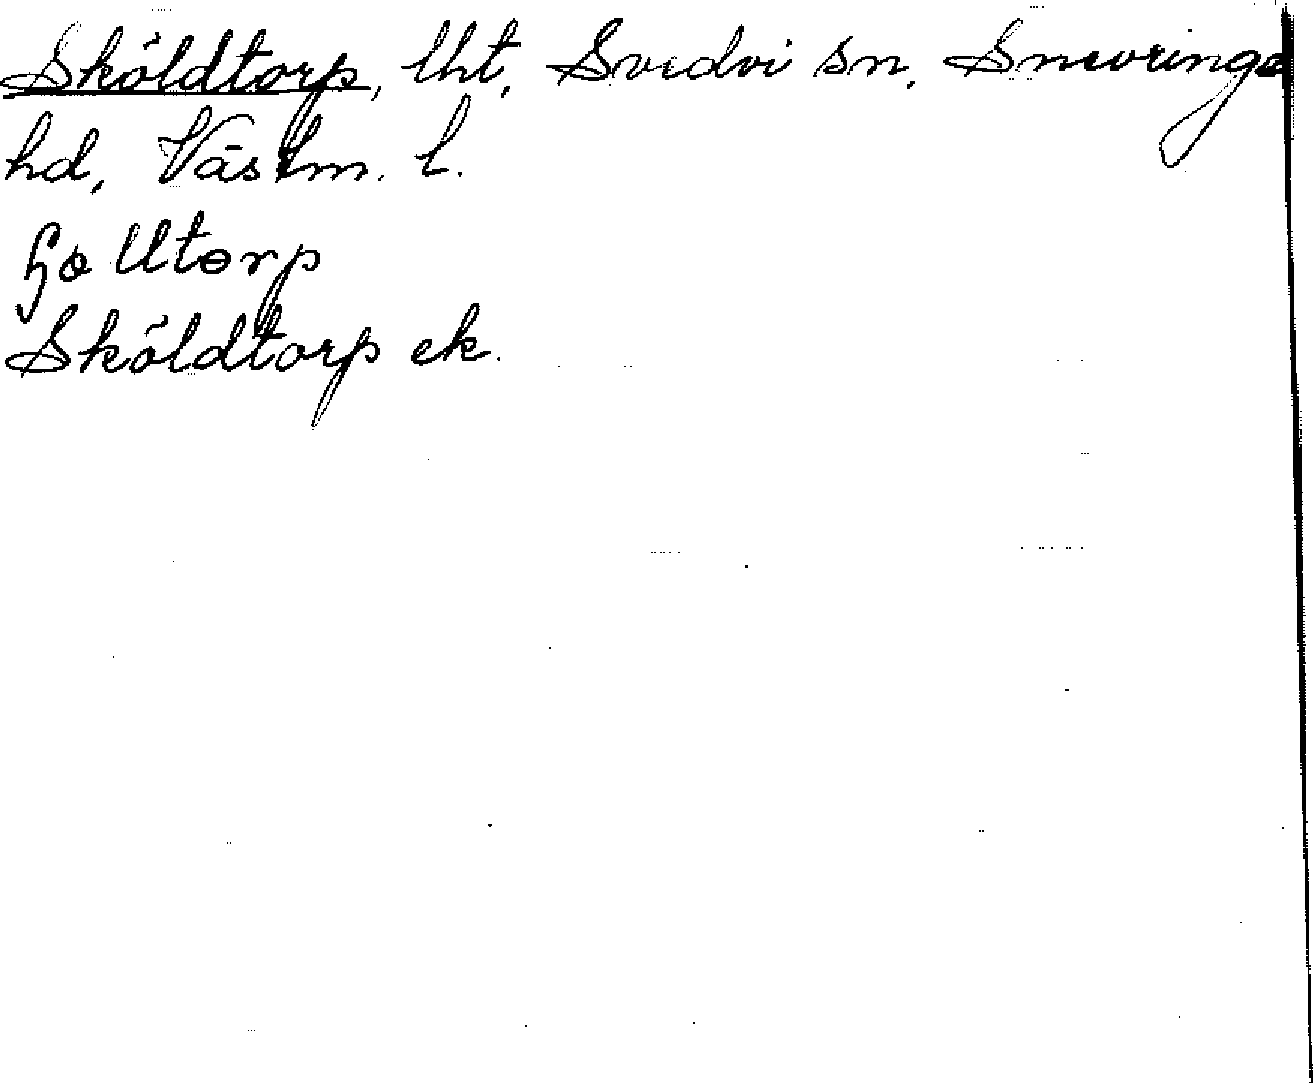 Sköldtorp, lht, Svedvi sn, Snevringe
hd, Västm. l.
Sköldtorp ek.